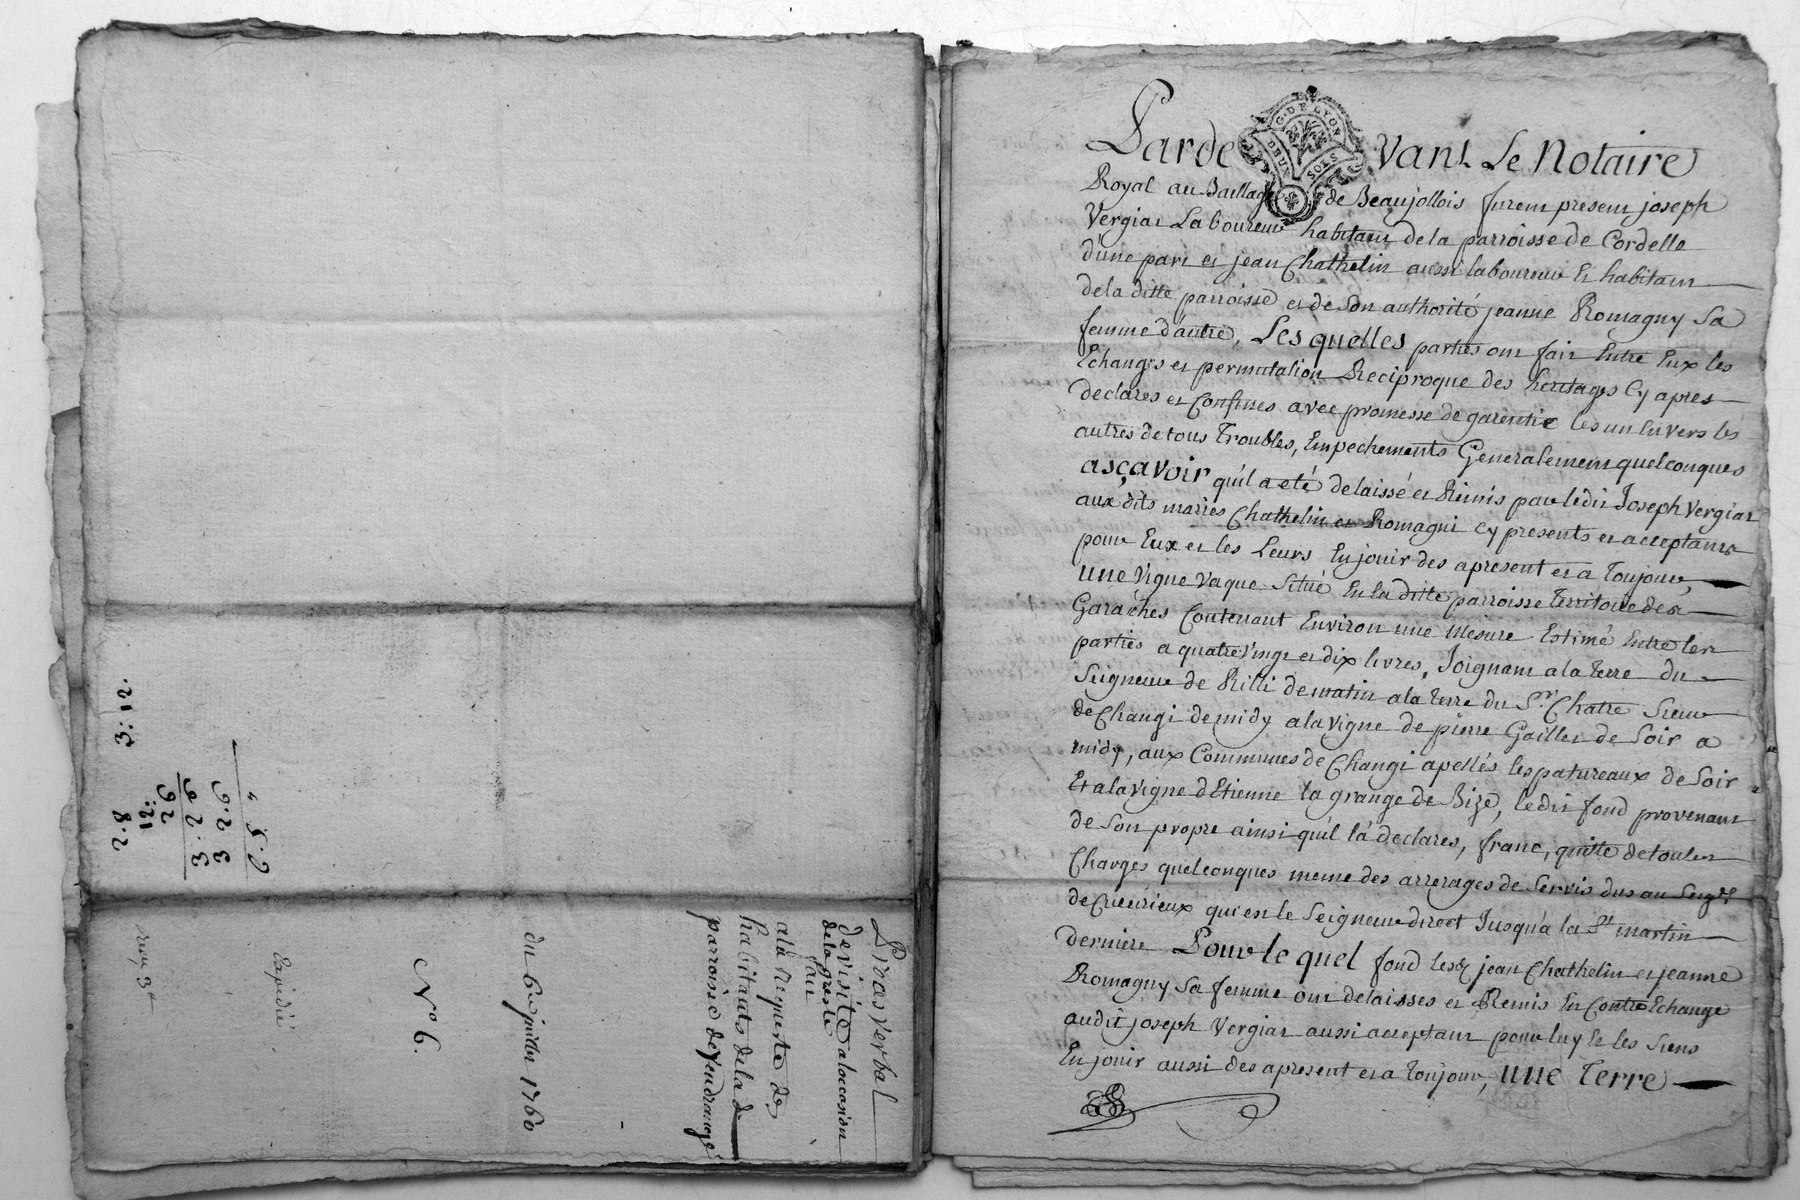 2.8 3:12.
12:
26
3.26
3 2.6
6.5.
Procas verbal
de visitte a loccasion
de la greslé
fait
a la Requeste des
habitants de la d
parroisse de Vendrangé
du 6e juillet 1760
No 6.
Expedié
reçu 3lt
G. DE LYON
DEUX SOLS
Pardevant Le Notaire
Royal au Baillage de Beaujollois furent present joseph
Vergiat Laboureur habitant de la parroisse de Cordelle
d'une part et jean Chathelin aussi laboureur Et habitant
de la ditte parroisse et de son authorité jeanne Romagny sa
femme d'autre, Les quelles parties ont fait Entre Eux les
Echanges et permutation Reciproque des heritages Cy apres
declares et Confines avec promesse de garentie les un Envers les
autres de tous Troubles, Empechements Generalement quelconques
asçavoir qu'il a eté delaissé et Remis par ledit Joseph Vergiat
aux dits mariés Chathelin et Romagni Cy presents et acceptants
pour Eux et les Leurs En jouir des apresent et a Toujour,
une Vigne Vaque Situé En la ditte parroisse Territoire des
Garaches Contenant Environ une Mesure Estimé Entre les
parties a quatre vingt et dix livres, Joignant a la terre du
Seigneur de Rilli de matin a la terre du Sr Chatre Sieur
de Changi de midy a la vigne de pierre Gaillet de Soir a
midy, aux Communes de Changi apellés les patureaux de Soir
Et a la vigne d'Etienne la grange de Bize, ledit fond provenant
de Son propre ainsi qu'il l'a declares, franc, quitte de toutes
Charges quelconques meme des arrerages de Servis dus au Seigr
de qui est le Seigneur direct Jusqu'a la St martin
derniere Pour le quel fond lesd jean Chathelin et jeanne
Romagny Sa femme ont delaisses et Remis En Contre Echange
audit joseph Vergiat aussi acceptant pour luy Et les Siens
En jouir aussi des apresent et a Toujour, une Terre